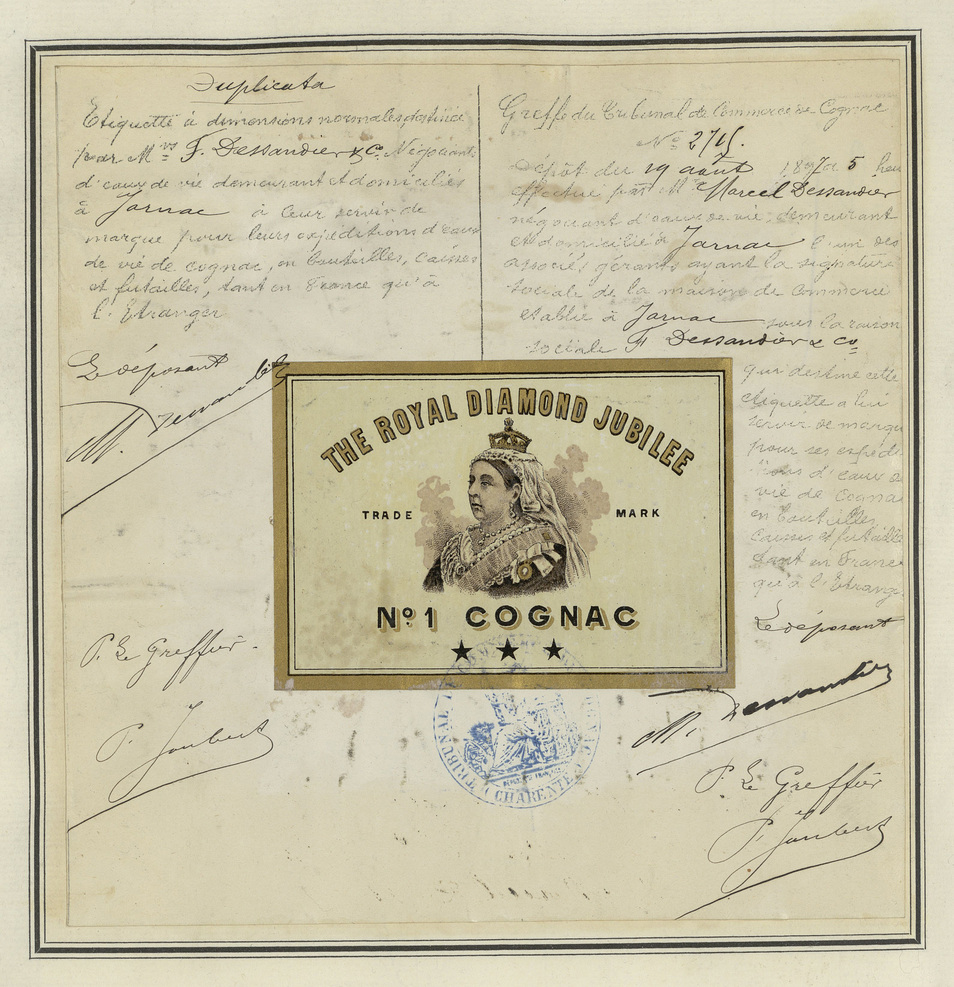 Duplicata
Etiquette à dimensions normales, destinée
pour M.rs F. Dessandier & Co. Négociants
d'eaux de vie demeurant et domiciliés
à Jarnac à leur servir de
marque pour leurs expéditions d'eaux
de vie de cognac, en bouteilles, caisses
et futailles, tant en France qu'à
l'Etranger
Le déposant
M. Dessandier
P. Le Greffier
P. Joubert
Greffe du Tribunal de Commerce de Cognac
No 2715.
Dépôt du 19 août 1897 à 5 heu
effectué par M. Marcel Dessandier
négociant d'eaux de vie, demeurant
et domicilié à Jarnac l'un des
associés gérants ayant la signature
sociale de la maison de Commerce
etablie à Jarnac sous la raison
sociale F. Dessandier & Co
qui destine cette
etiquette a lui
servir de marque
pour ses expédi
tions d'eaux de
vie de Cogna
en bouteilles,
caisses et futaille
tant en France
qu'à l'Etrang
Le déposant
M. Dessandier
P. Le Greffier
P. Joubert
THE ROYAL DIAMOND JUBILEE
TRADE MARK
No 1 COGNAC
TRIBUNAL DE COMMERCE
CHARENTE